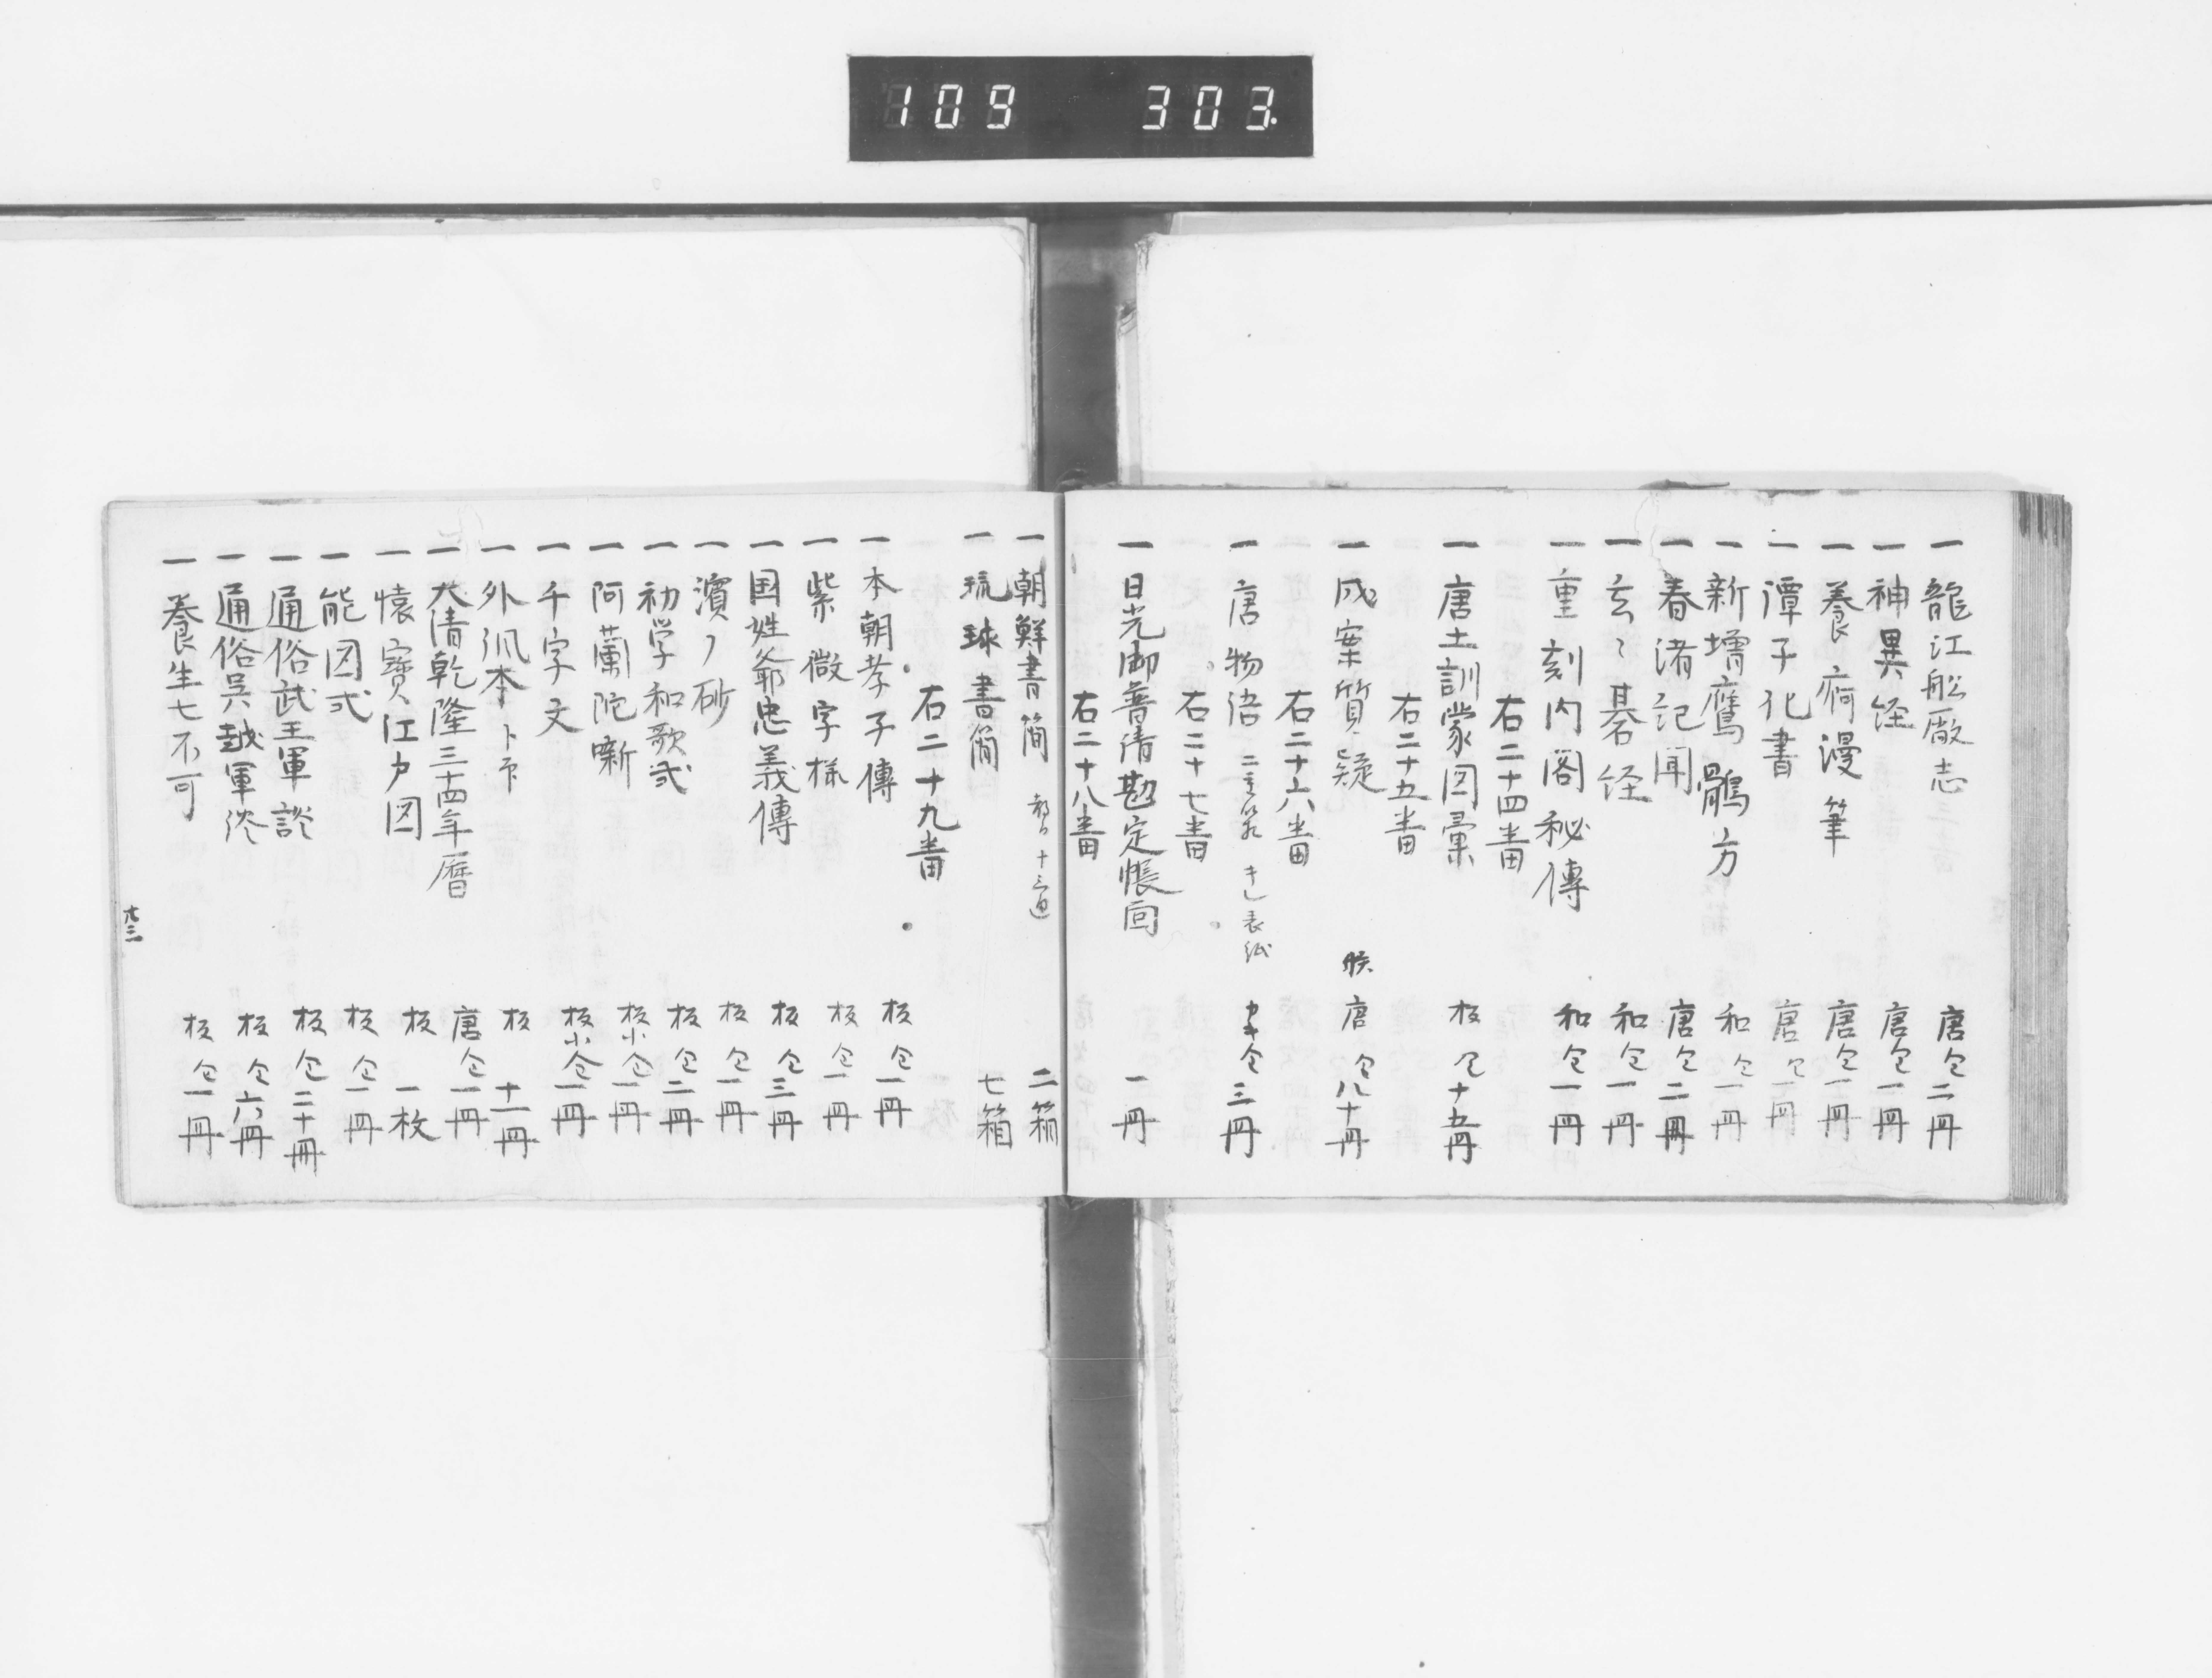 109 303.
一 龍江船廠志 唐仝二冊
一 神異経 唐仝一冊
一 養痾漫筆 唐仝一冊
一 譚子化書 唐仝一冊
一 新増鷹鶻方 和仝一冊
一 春渚記聞 唐仝二冊
一 玄々碁経 和仝一冊
一 重刻内閣秘傳 和仝一冊
右二十四番
一 唐土訓蒙図彙 板仝十五冊
右二十五番
一 成案質疑 唐仝八十冊
右二十六番
一 唐物語 表紙 仝三冊
右二十七番
一 日光御普請勘定帳 一冊
右二十八番
一 朝鮮書簡 二箱
一 琉球書簡 七箱
右二十九番
一 本朝孝子傳 板仝一冊
一 紫微字様 板仝一冊
一 国姓爺忠義傳 板仝三冊
一 濱ノ砂 板仝一冊
一 初学和歌式 板仝二冊
一 阿蘭陀噺 板小仝一冊
一 千字文 板小仝一冊
一 外源本 板十一冊
一 大清乾隆三十四年暦 唐仝一冊
一 懐寶江戸図 板一枚
一 能図式 板仝一冊
一 通俗武王軍談 板仝二十冊
一 通俗呉越軍談 板仝六冊
一 養生七不可 板仝一冊